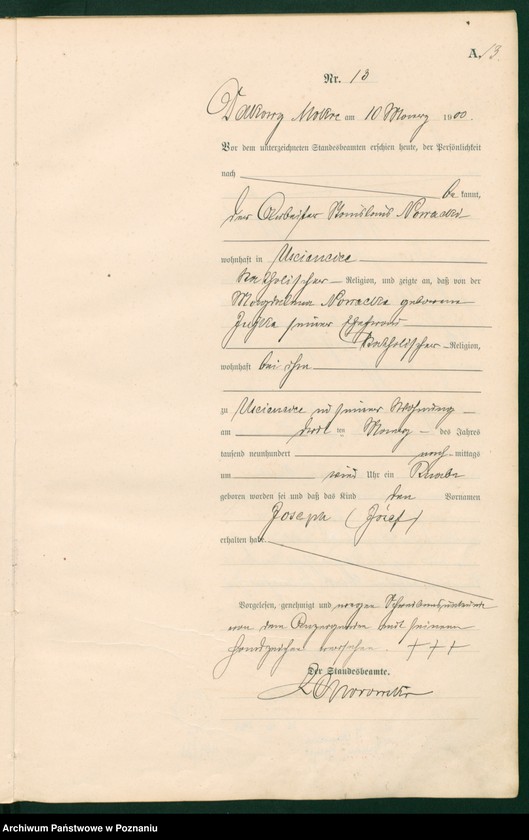 A. 13.
Nr. 13
Mokre am 10 1900.
Vor dem unterzeichneten Standesbeamten erschien heute, der Persönlichkeit
nach be kannt,
der Arbeiter Stanislaus Nowacki
wohnhaft in Uscianice
katholischer Religion, und zeigte an, daß von der
Magdalena Nowacka geborene
seiner Ehefrau
katholischer Religion,
wohnhaft bei ihm
zu Uscianice in seiner Wohnung
am ten des Jahres
tausend neunhundert nach mittags
um Uhr ein Knabe
geboren worden sei und daß das Kind den Vornamen
Joseph (Józef)
erhalten habe
Vorgelesen, genehmigt und wegen
von dem mit seinem
Handzeichen versehen. +++
Der Standesbeamte.
Archiwum Państwowe w Poznaniu